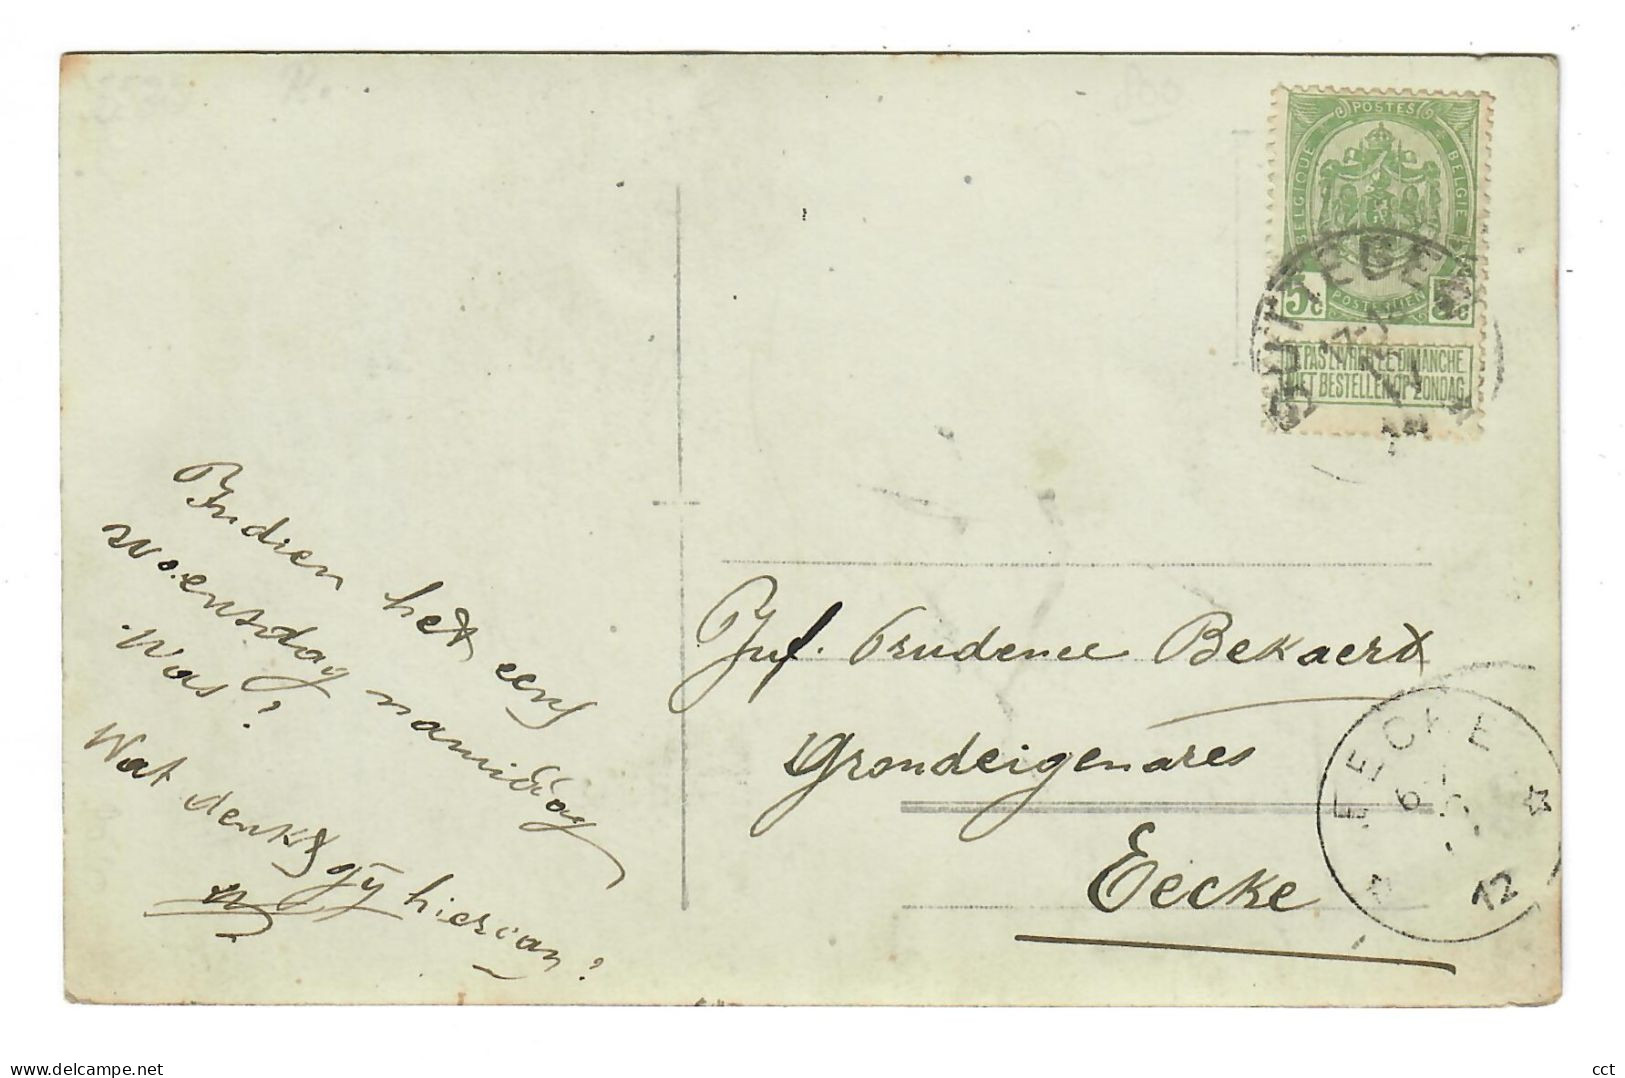 POSTES
BELGIQUE
BELGIË
5c
POSTERIJEN
NE PAS LIVRER LE DIMANCHE
NIET BESTELLEN OP ZONDAG
Indien het eens
woensdag namiddag
was?
Wat denkt gij hiervan?
Juf. Prudence Bekaert
Grondeigenares
Eecke
EECKE
12
delcampe.net
cct